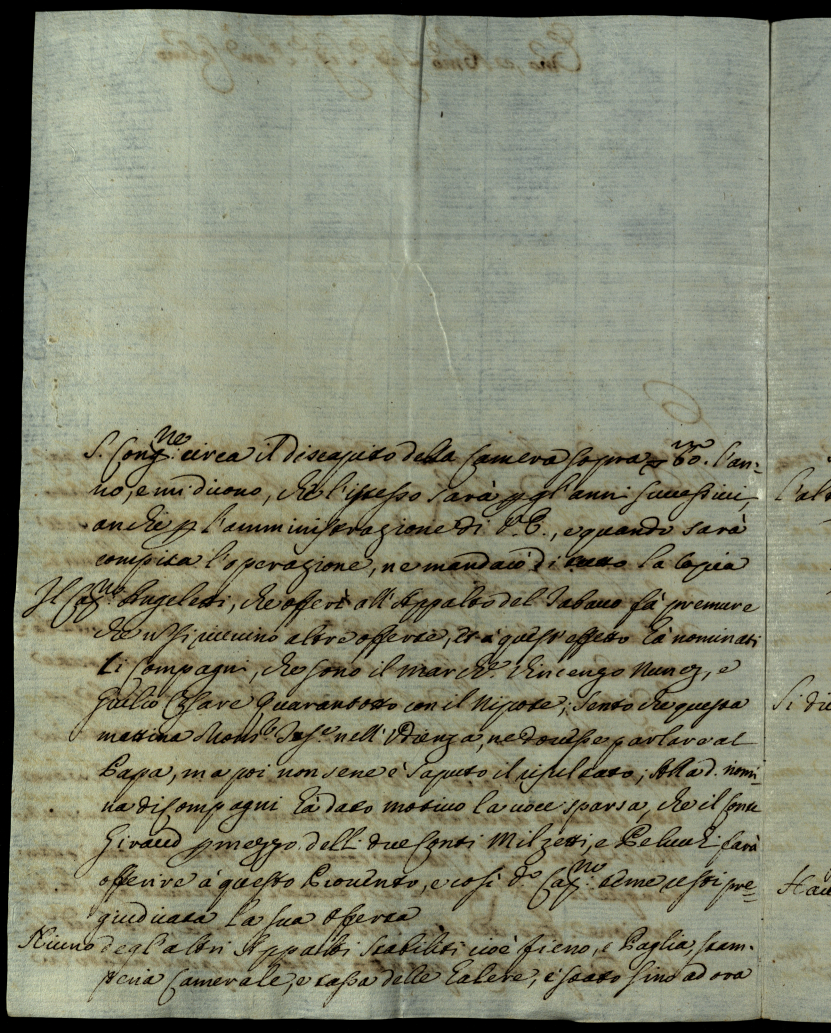 S. Cong.ne circa il discapito della Camera sopra 60. l'an=
no, e mi dicono, che l'istesso sarà p gl'anni successivi,
anche p l'amministrazione di V.E., e quando sarà
compita l'operazione, ne mandarò di tutto la Copia
Il Cap.no Angeletti, che offerì all'Appalto del Tabacco fà premure
che si ricevino altre offerte, et à quest'effetto hà nominati
li Compagni, che sono il March.e Vincenzo Nunez, e
Giulio Cesare Quarantotto con il Nipote; sento che questa
mattina Mons.re Tes.re nell'Udienza, ne dovesse parlare al
Papa, ma poi non se ne è saputo il risultato; Alla d. nomi=
na di Compagni hà dato motivo la voce sparsa, che il Conte
Giraud p mezzo delli due Conti Milzetti, e Pelucchi farà
offerire à questo Provento, e così d.o Cap.no teme resti pre=
giudicata la sua offerta
Niuno degl'altri Appalti stabiliti cioè fieno, e Paglia, stam=
peria Camerale, e tassa delle Galere, è stato sino ad ora
l'alt
Si di
Hav